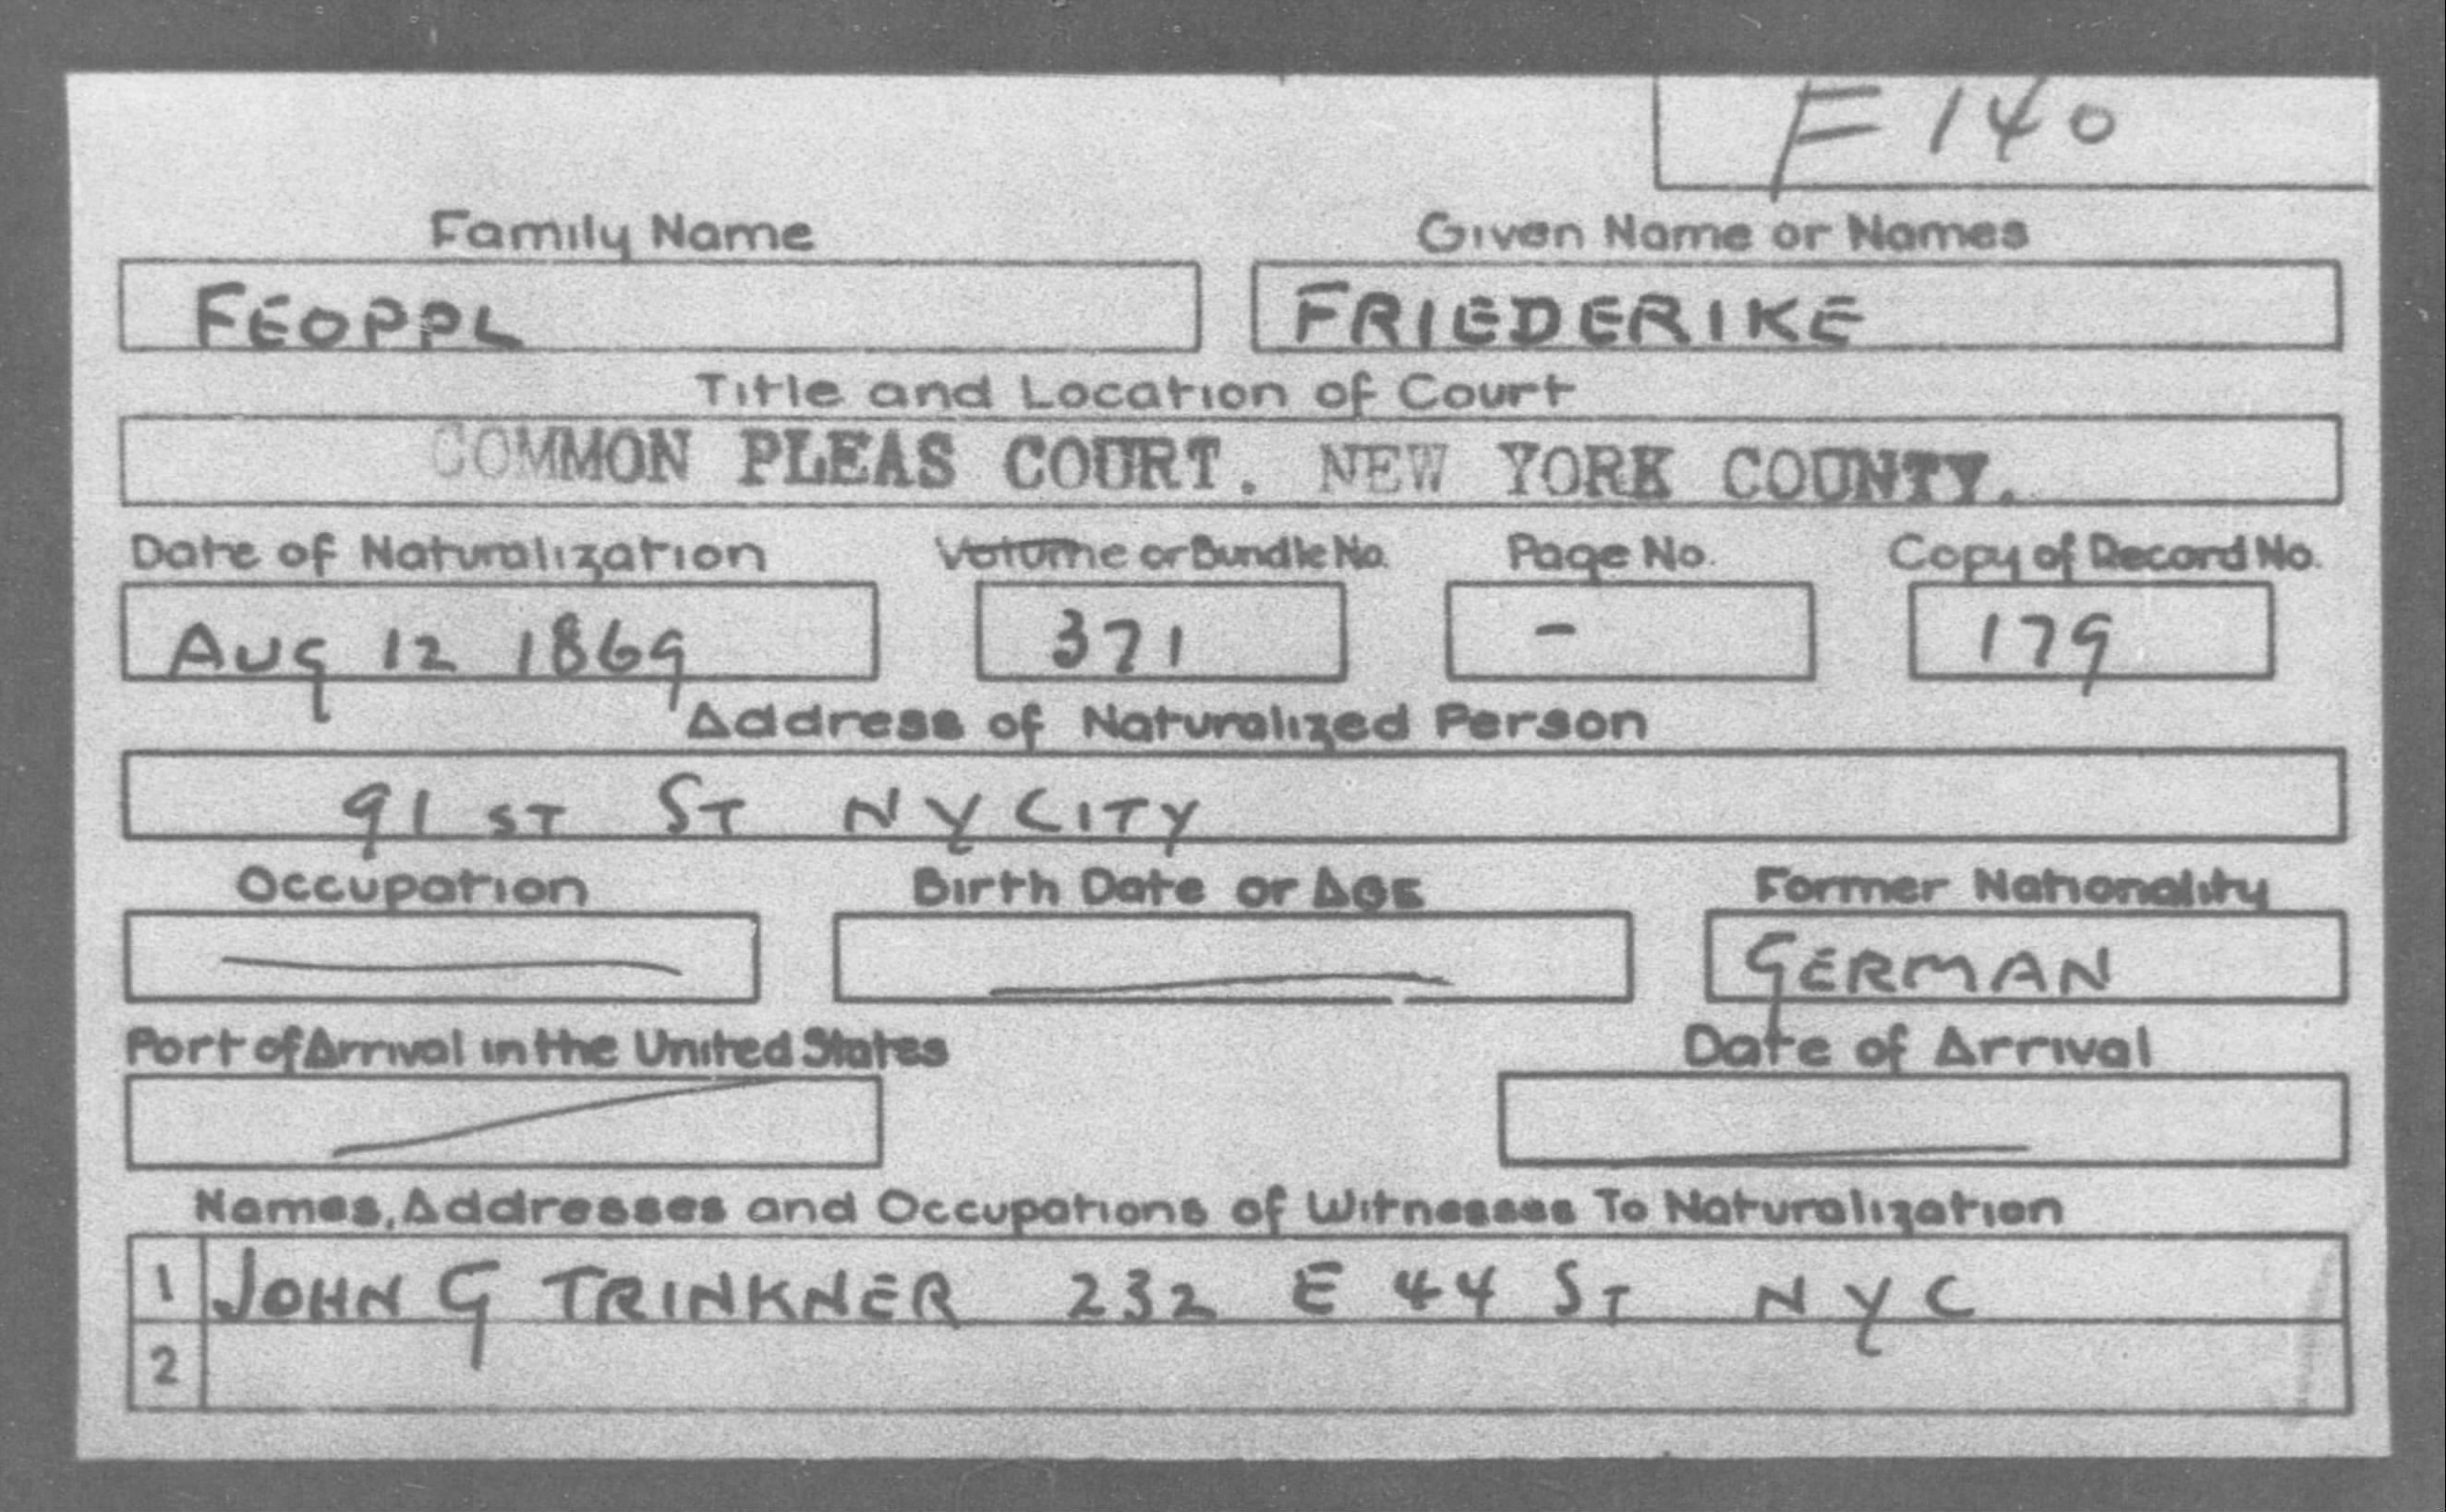 F 140
Family Name Given Name or Names
FEOPPL FRIEDERIKE
Title and Location of Court
COMMON PLEAS COURT. NEW YORK COUNTY.
Date of Naturalization Volume or Bundle No. Page No. Copy of Record No.
Aug 12 1869 371 - 179
Address of Naturalized Person
91 ST ST N Y CITY
Occupation Birth Date or AGE Former Nationality
GERMAN
Port of Arrival in the United States Date of Arrival
Names, Addresses and Occupations of Witnesses To Naturalization
1 JOHN G TRINKNER 232 E 44 ST N Y C
2